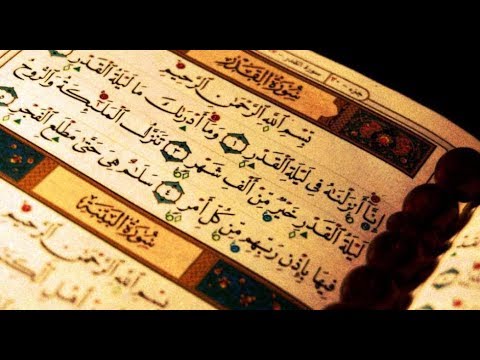 جزء ٣٠ سورة القدر
سُورَةُ القَدْرِ
بِسْمِ اللَّهِ الرَّحْمَٰنِ الرَّحِيمِ
إِنَّا أَنزَلْنَٰهُ فِى لَيْلَةِ الْقَدْرِ ١ وَمَا أَدْرَىٰكَ مَا لَيْلَةُ الْقَدْرِ ٢
لَيْلَةُ الْقَدْرِ خَيْرٌ مِّنْ أَلْفِ شَهْرٍ ٣ تَنَزَّلُ الْمَلَٰٓئِكَةُ وَالرُّوحُ
فِيهَا بِإِذْنِ رَبِّهِم مِّن كُلِّ أَمْرٍ ٤ سَلَٰمٌ هِىَ حَتَّىٰ مَطْلَعِ الْفَجْرِ ٥
سُورَةُ البَيِّنَةِ
بِسْمِ اللَّهِ الرَّحْمَٰنِ الرَّحِيمِ
مِنْ أَهْلِ الْكِتَٰبِ